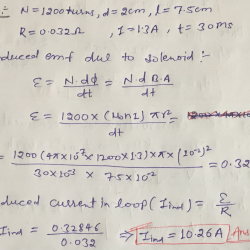 :- N = 1200 turns, d = 2cm, l = 7.5cm
R = 0.032Ω, I = 1.3A, t = 30ms
duced emf due to solenoid :-
ε = N.dφ/dt = N.d B.A/dt
ε = 1200 × (μ₀nI) πr²/dt =
= 1200 (4π×10⁻⁷×1200×1.3)×π×(10⁻²)²/30×10⁻³ × 7.5×10⁻² = 0.32
duced current in loop (Iind) = ε/R
Iind = 0.32846/0.032 ⇒ Iind = 10.26A Ans